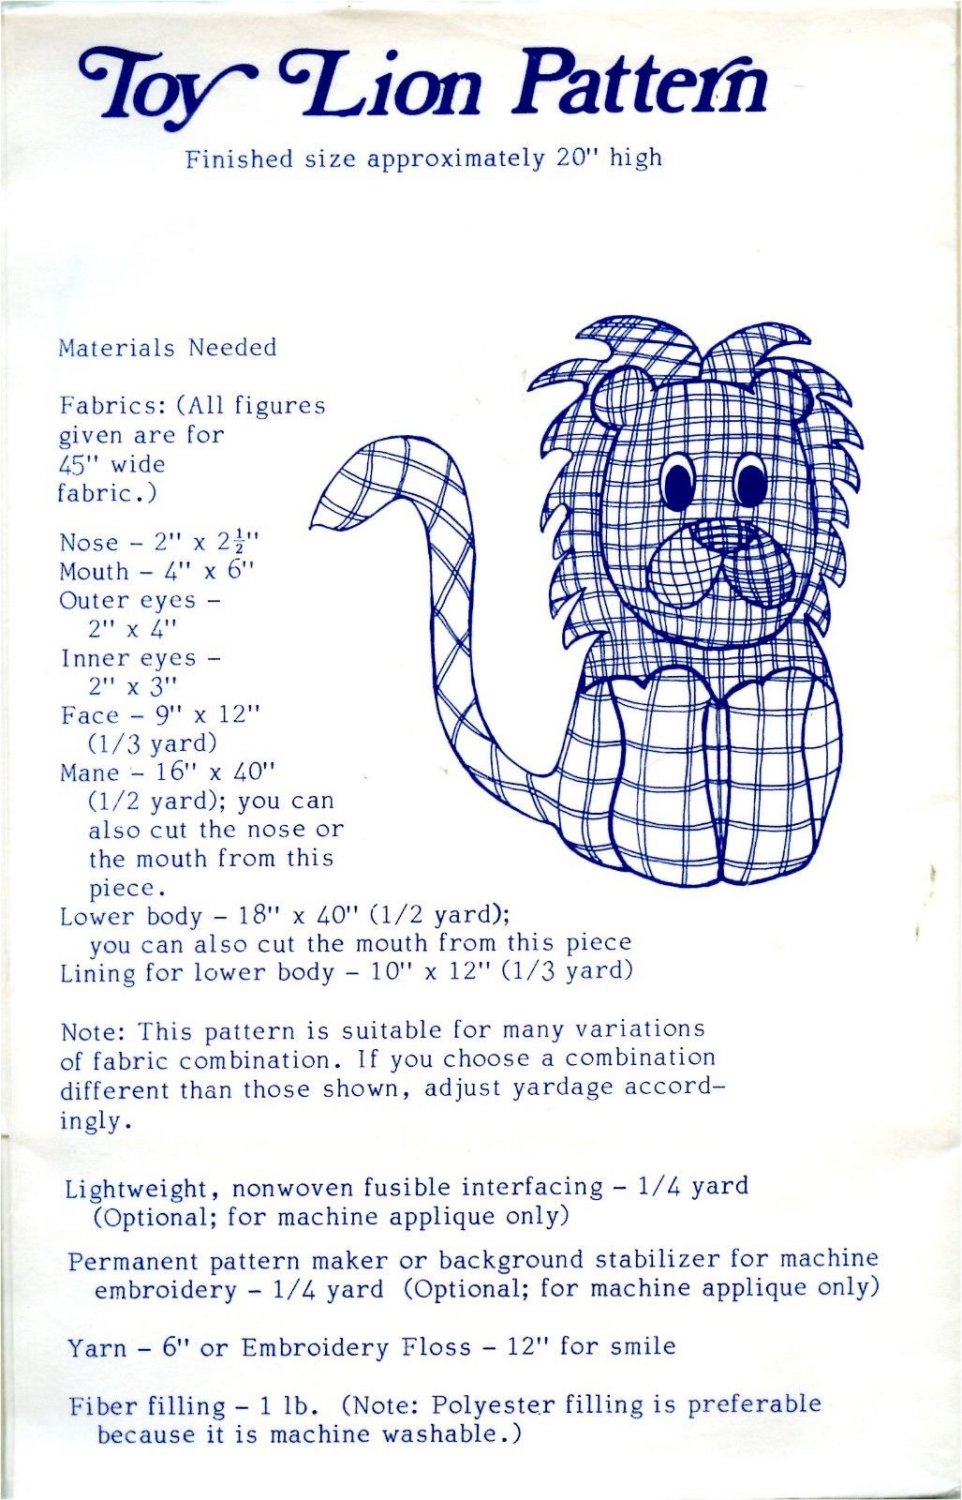 Toy Lion Pattern
Finished size approximately 20" high
Materials Needed
Fabrics: (All figures
given are for
45" wide
fabric.)
Nose - 2" x 2½"
Mouth - 4" x 6"
Outer eyes -
2" x 4"
Inner eyes -
2" x 3"
Face - 9" x 12"
(1/3 yard)
Mane - 16" x 40"
(1/2 yard); you can
also cut the nose or
the mouth from this
piece.
Lower body - 18" x 40" (1/2 yard);
you can also cut the mouth from this piece
Lining for lower body - 10" x 12" (1/3 yard)
Note: This pattern is suitable for many variations
of fabric combination. If you choose a combination
different than those shown, adjust yardage accord-
ingly.
Lightweight, nonwoven fusible interfacing - 1/4 yard
(Optional; for machine applique only)
Permanent pattern maker or background stabilizer for machine
embroidery - 1/4 yard (Optional; for machine applique only)
Yarn - 6" or Embroidery Floss - 12" for smile
Fiber filling - 1 lb. (Note: Polyester filling is preferable
because it is machine washable.)